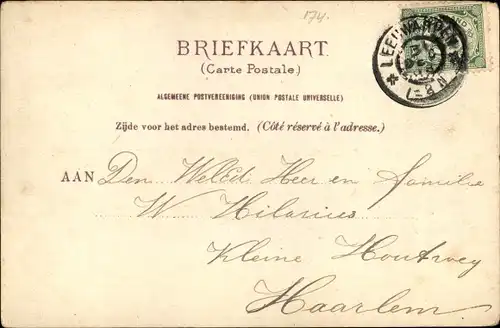 174.
BRIEFKAART.
(Carte Postale.)
LEEUWARDEN
ALGEMEENE POSTVEREENIGING (UNION POSTALE UNIVERSELLE)
Zijde voor het adres bestemd. (Côté réservé à l'adresse.)
AAN Den WelEd. Heer en familie
W Hilarius
Kleine Houtweg
Haarlem